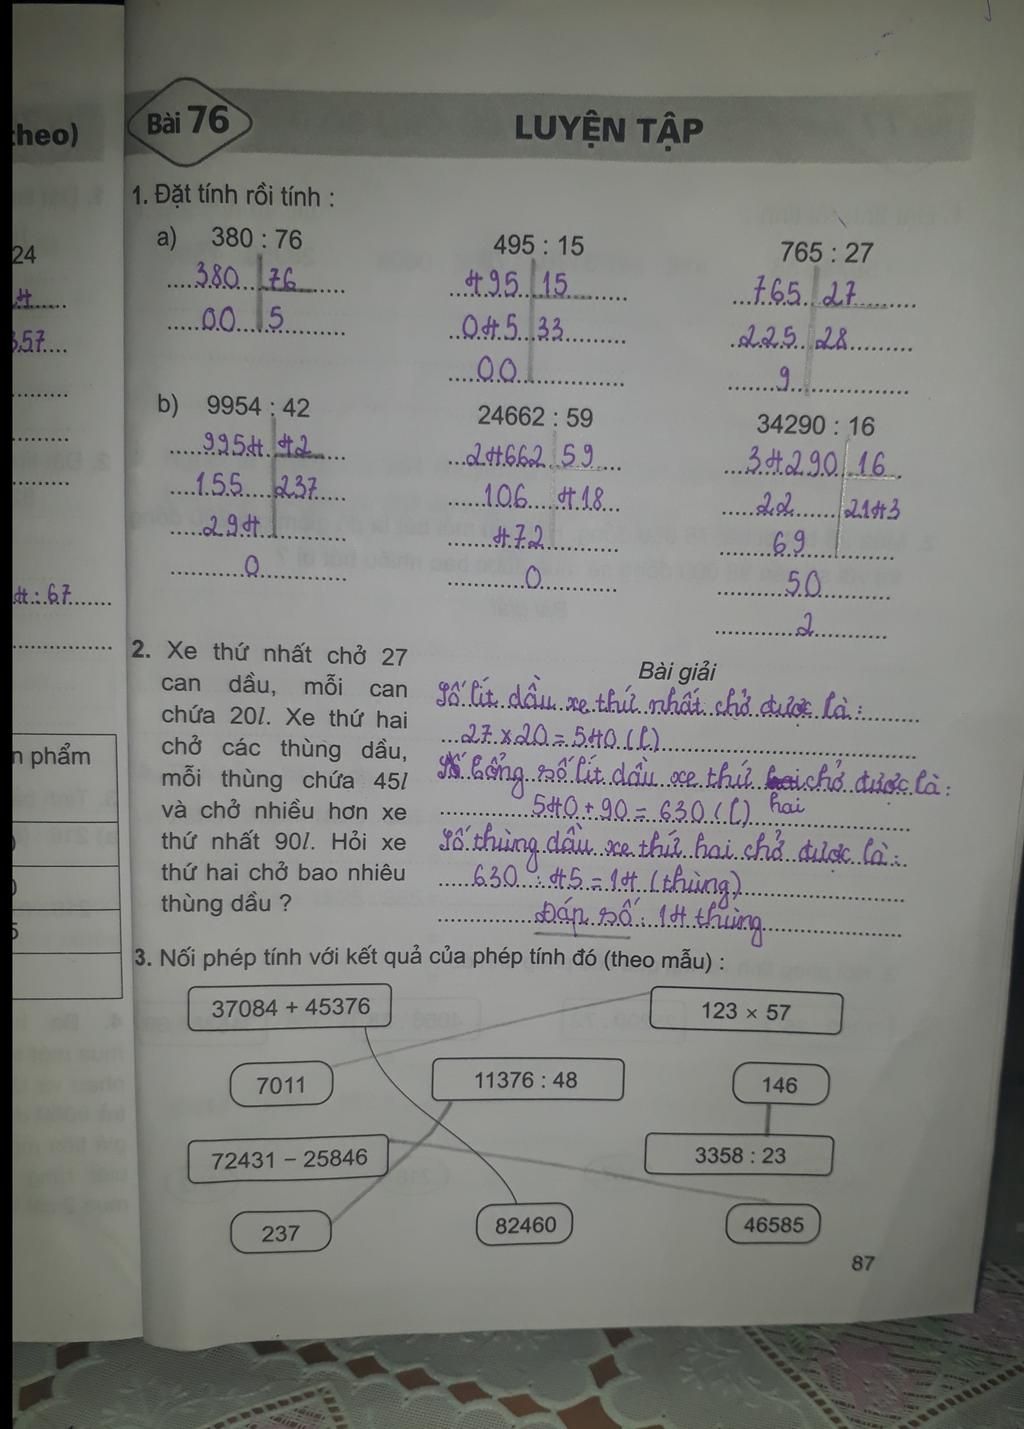 theo)
Bài 76
LUYỆN TẬP
1. Đặt tính rồi tính :
24
a) 380 : 76
495 : 15
765 : 27
380 76
495 15
765 27
4
00 5
045 33
225 28
357
00
9
b) 9954 : 42
24662 : 59
34290 : 16
9954 42
24662 59
34290 16
155 237
106 418
22 2143
294
472
69
0
0
50
4 : 67
2
2. Xe thứ nhất chở 27
can dầu, mỗi can
chứa 20l. Xe thứ hai
chở các thùng dầu,
mỗi thùng chứa 45l
và chở nhiều hơn xe
thứ nhất 90l. Hỏi xe
thứ hai chở bao nhiêu
thùng dầu ?
Bài giải
Số lít dầu xe thứ nhất chở được là :
27 x 20 = 540 (l)
bổng số lít dầu xe thứ hai chở được là :
540 + 90 = 630 (l)
Số thùng dầu xe thứ hai chở được là :
630 : 45 = 14 (thùng)
Đáp số : 14 thùng
n phẩm
5
3. Nối phép tính với kết quả của phép tính đó (theo mẫu) :
37084 + 45376
123 × 57
7011
11376 : 48
146
72431 – 25846
3358 : 23
237
82460
46585
87